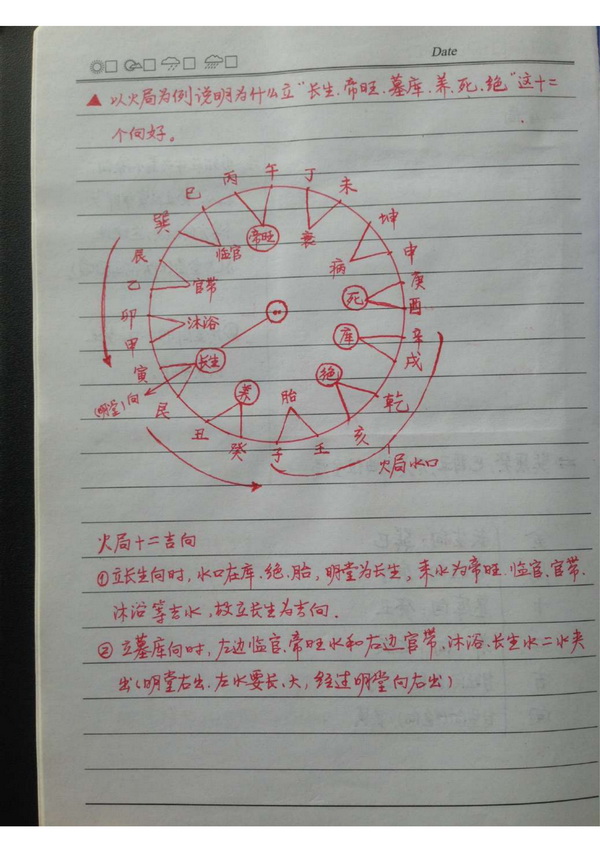 Date
▲ 以火局为例说明为什么立"长生、帝旺、墓库、养、死、绝"这十二
个向好。
丙 午 丁 未
巳
巽 坤
帝旺 衰
辰 临官 病 申
乙 官带 庚
死 酉
卯 沐浴
甲 库 辛
寅 长生 戌
(明堂)向 养 胎 绝
艮 乾
丑 亥
癸 子 壬
火局水口
火局十二吉向
①立长生向时,水口在库、绝、胎,明堂为长生,来水为帝旺、临官、官带、
沐浴等吉水,故立长生为吉向。
②立墓库向时,左边临官、帝旺水和右边官带,沐浴、长生水二水夹
出(明堂右出、左水要长、大,经过明堂向右出)